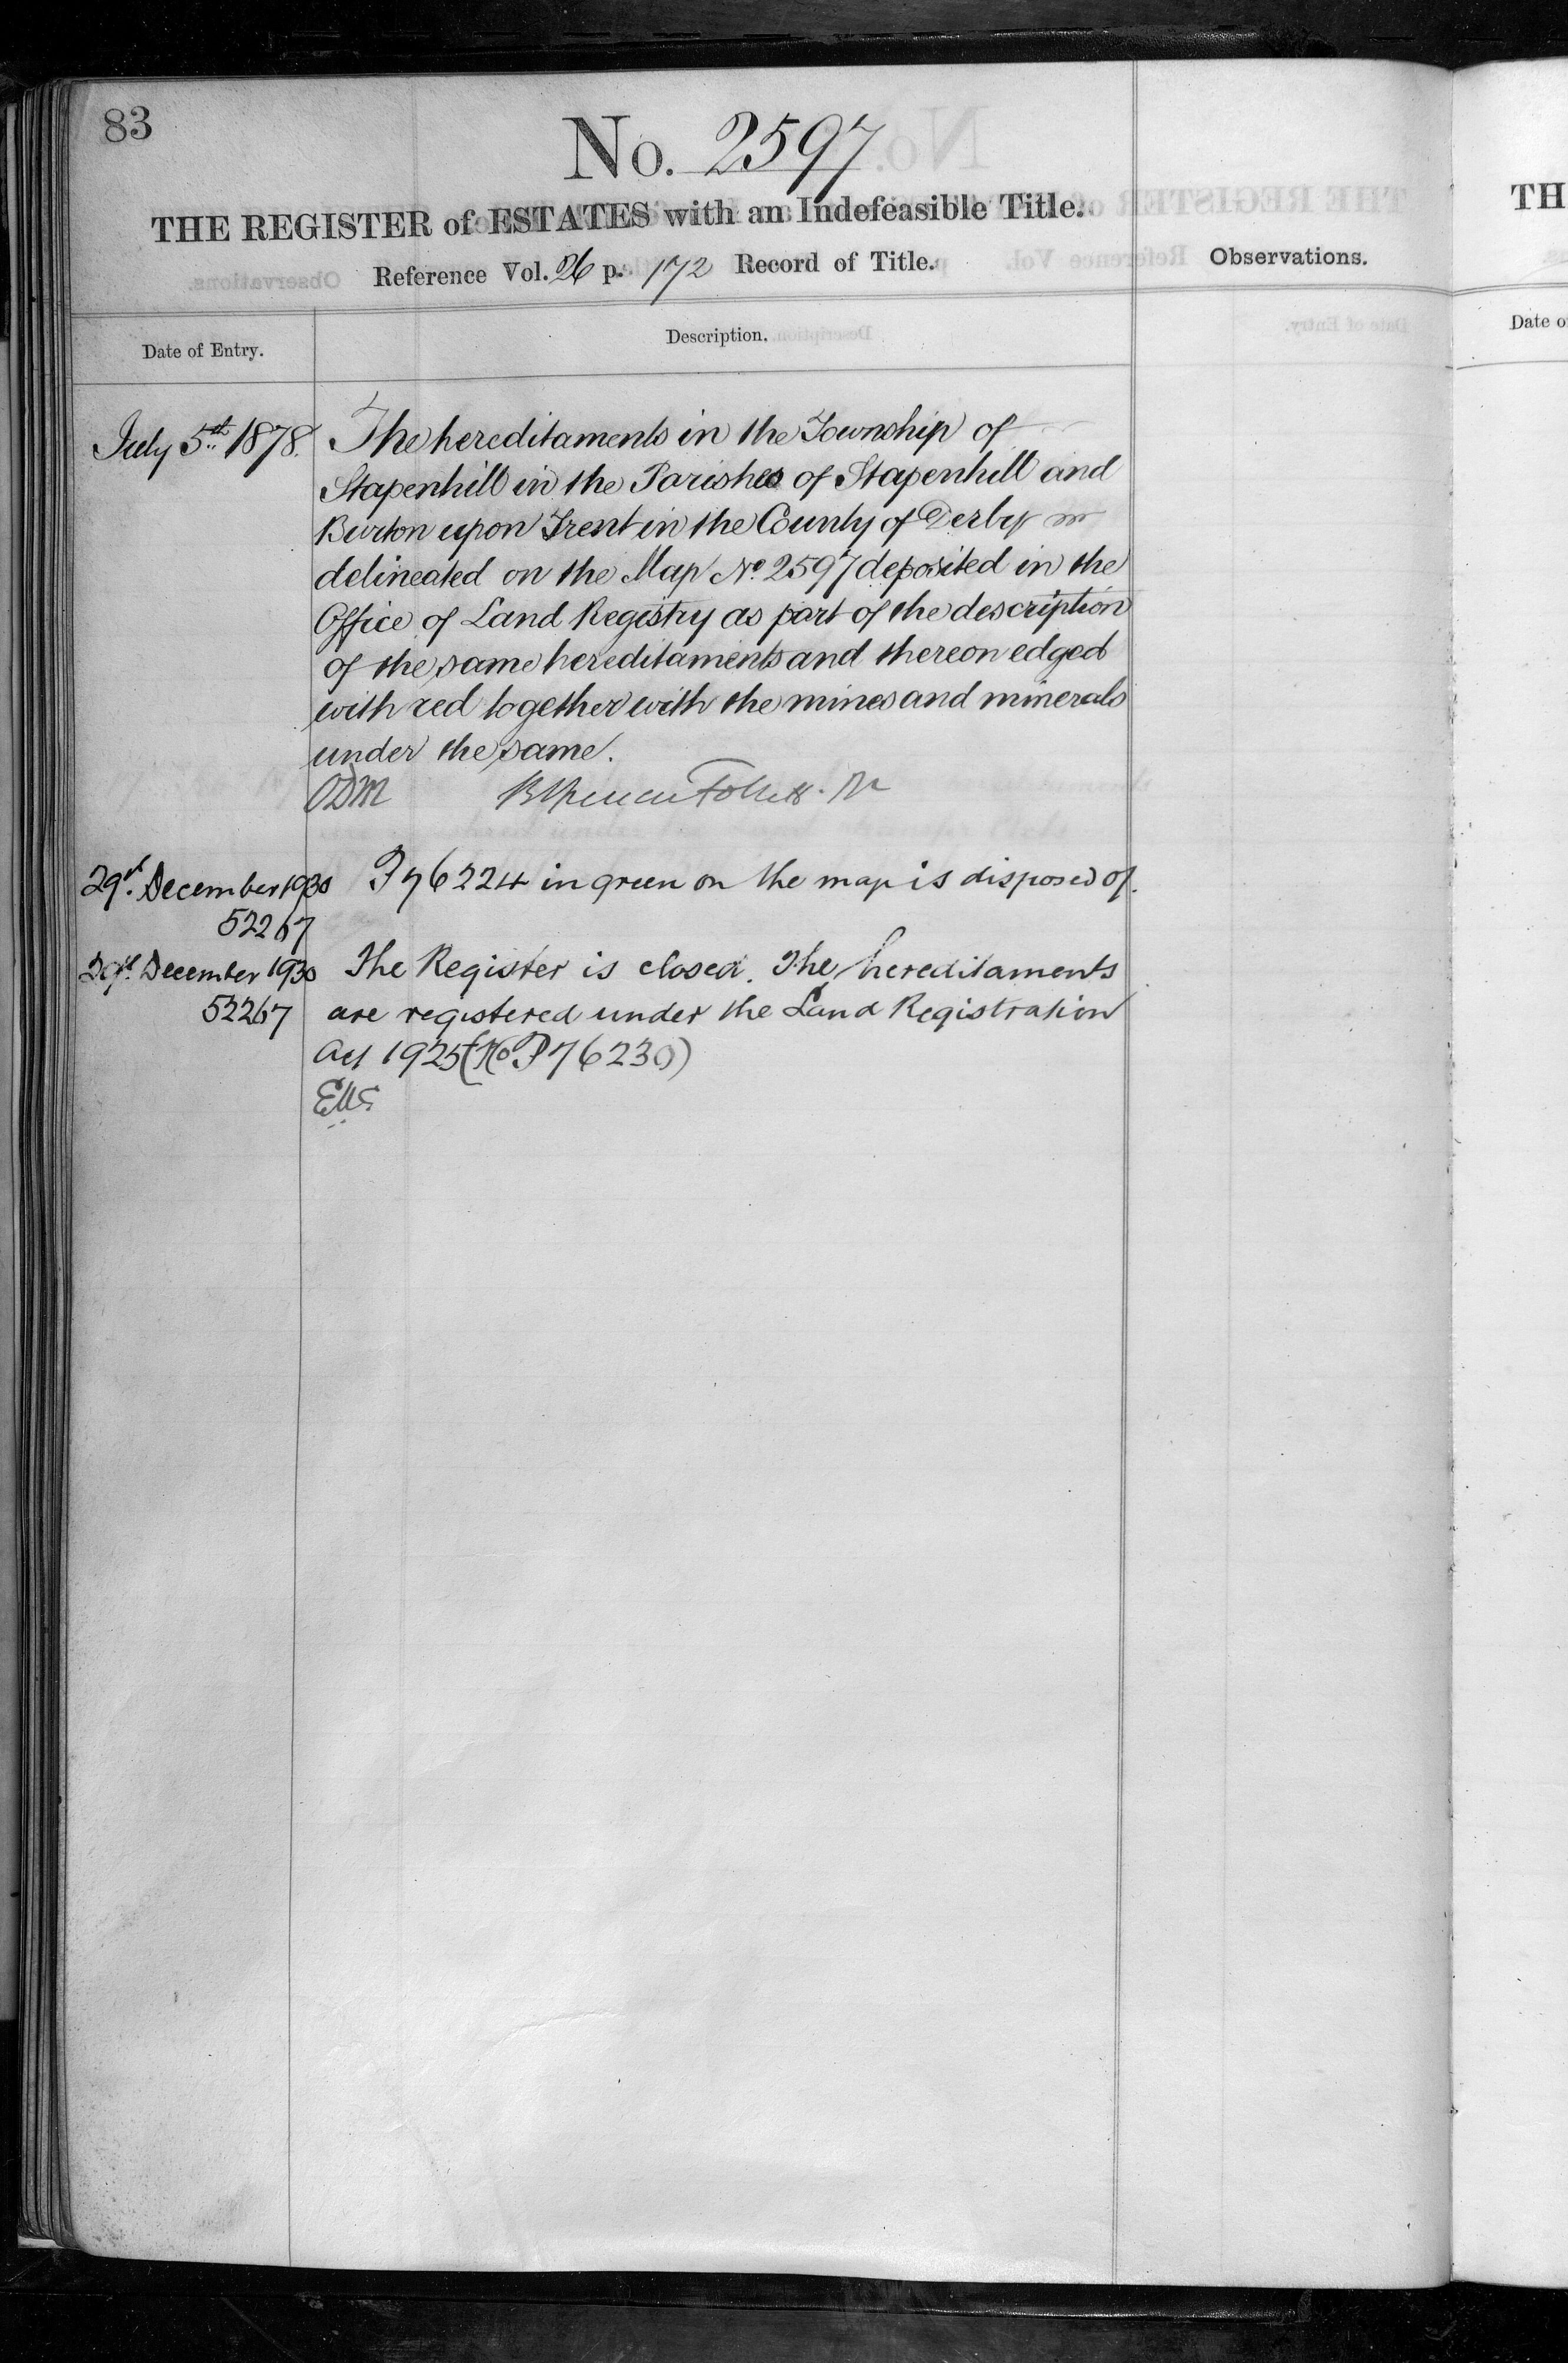 83
No. 2597
THE REGISTER of ESTATES with an Indefeasible Title.
Reference Vol. 26 p. 172 Record of Title.
Observations.
Date of Entry.
Description.
July 5th 1878.
The hereditaments in the Township of
Stapenhill in the Parishes of Stapenhill and
Burton upon Trent in the County of Derby
delineated on the Map No. 2597 deposited in the
Office of Land Registry as part of the description
of the same hereditaments and thereon edged
with red together with the mines and minerals
under the same.
ODM
29th December 1930
52267
P76224 in green on the map is disposed of.
29th December 1930
52267
The Register is closed. The hereditaments
are registered under the Land Registration
Act 1925 (No P76230)
TH
Date o